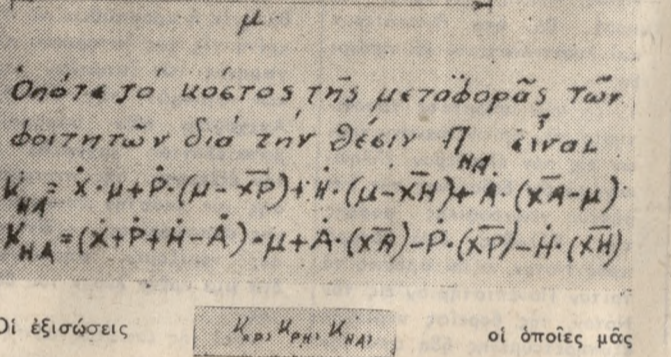 μ
Ὁπότε τό κόστος τῆς μεταφορᾶς τῶν
φοιτητῶν διά τήν θέσιν Π_ΗΑ εἶναι
Κ_ΗΑ = Ẋ·μ+Ṗ·(μ-X̅P̅)+Ḣ·(μ-X̅H̅)+Ȧ·(X̅A̅-μ)
Κ_ΗΑ = (Ẋ+Ṗ+Ḣ-Ȧ)·μ+Ȧ·(X̅A̅)-Ṗ·(X̅P̅)-Ḣ·(X̅H̅)
Οἱ ἐξισώσεις Κ_ΧΡ, Κ_ΡΗ, Κ_ΗΑ, οἱ ὁποῖες μᾶς